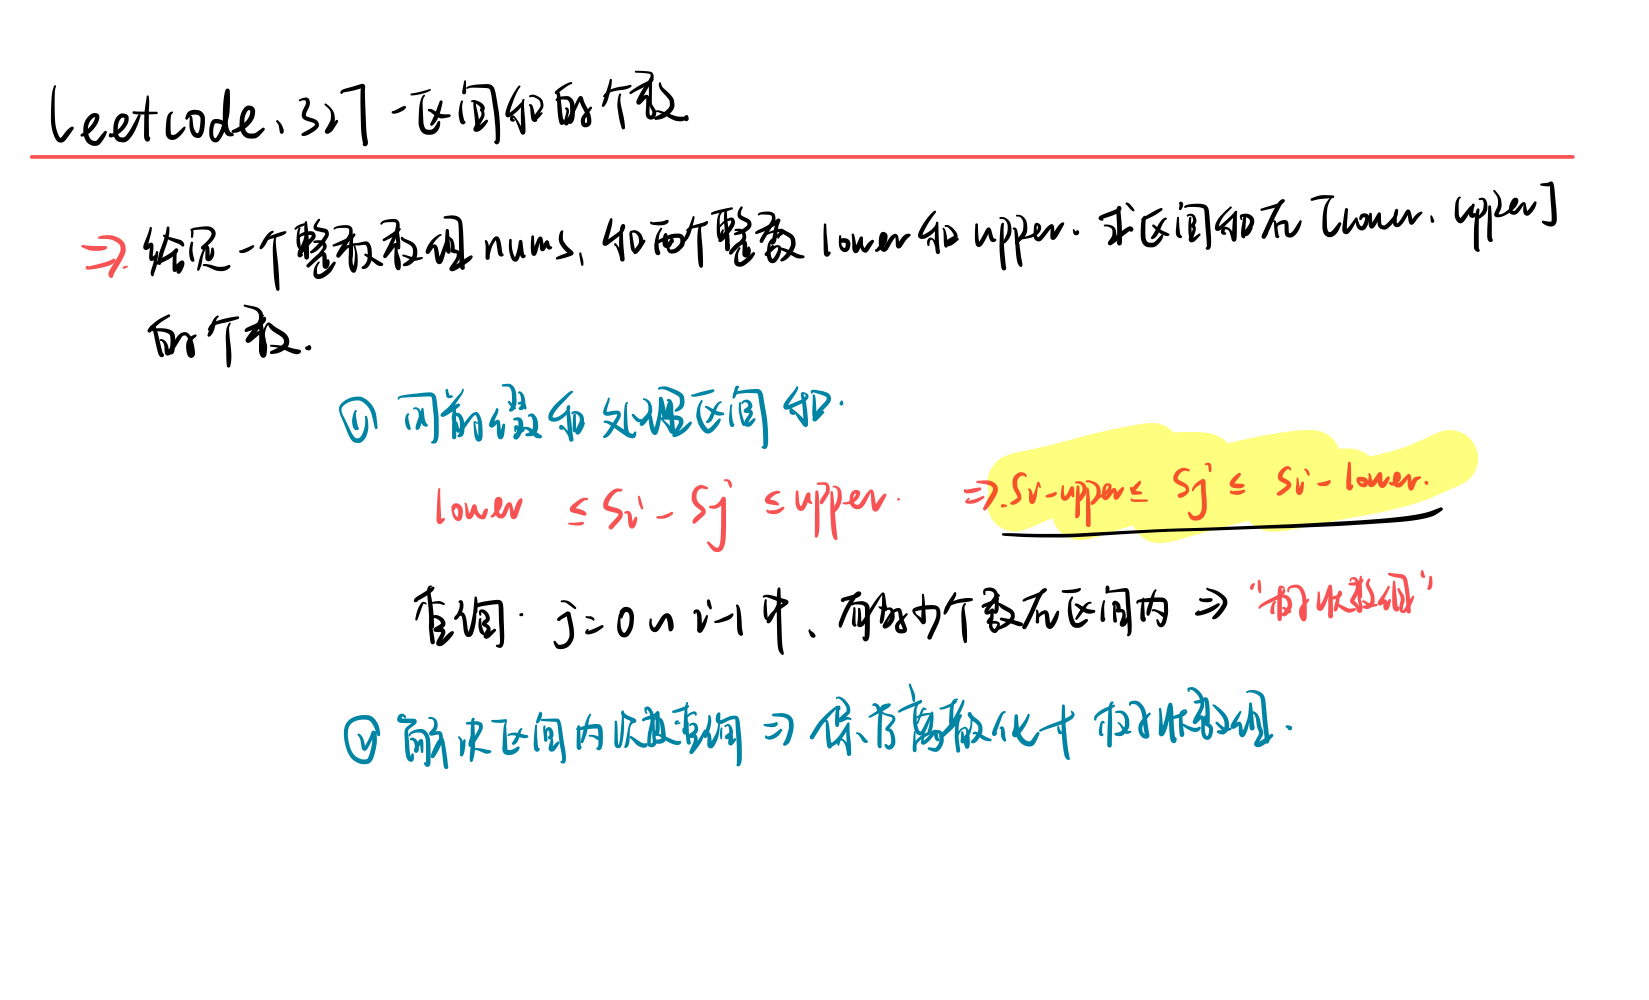 Leetcode、327 - 区间和的个数
⇒ 给定一个整数数组nums，和两个整数lower和upper. 求区间和在[lower, upper]
的个数.
① 用前缀和处理区间和.
lower ≤ Si - Sj ≤ upper. ⇒ Si-upper ≤ Sj ≤ Si - lower.
查询. j=0 ~ i-1中、有多少个数在区间内 ⇒ “树状数组”
② 解决区间内次数查询 ⇒ 保序离散化 + 树状数组.